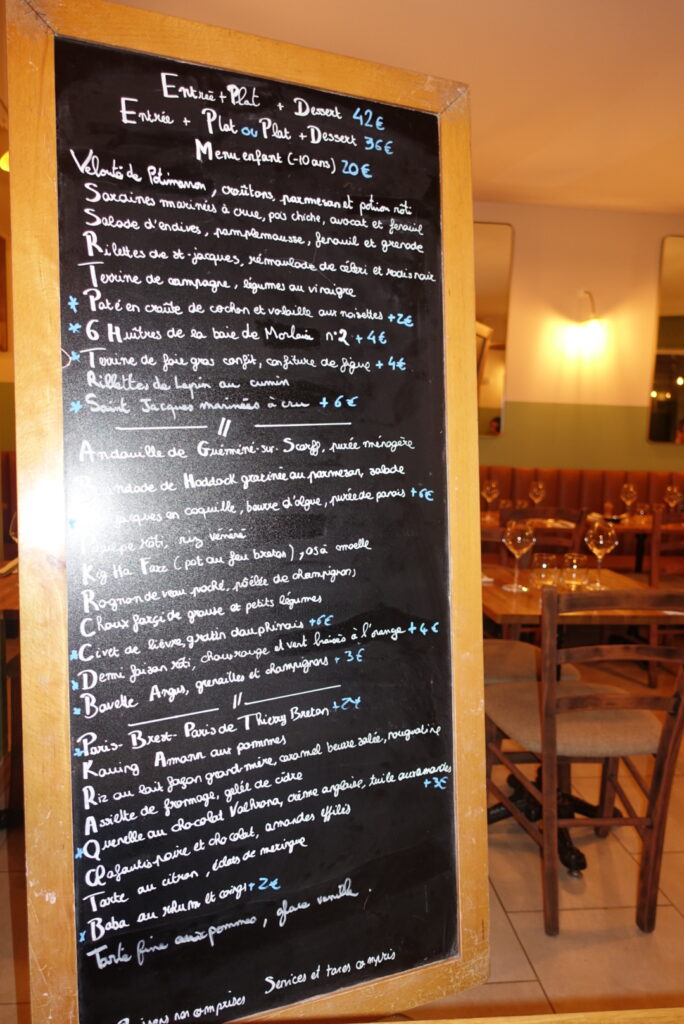 Entrée + Plat + Dessert 42€
Entrée + Plat ou Plat + Dessert 36€
Menu enfant (-10 ans) 20€
Velouté de Potimarron, croûtons, parmesan et potiron rôti
Sardines marinées à crue, pois chiche, avocat et fenouil
Salade d'endives, pamplemousse, fenouil et grenade
Rillettes de st-jacques, rémoulade de céleri et radis noir
Terrine de campagne, légumes au vinaigre
* Paté en croûte de cochon et volaille aux noisettes +2€
* 6 Huîtres de la baie de Morlaix n°2 + 4€
* Terrine de foie gras confit, confiture de figue + 4€
Rillettes de Lapin au cumin
* Saint Jacques marinées à cru + 6€
//
Andouille de Guémené-sur-Scorff, purée ménagère
Brandade de Haddock gratinée au parmesan, salade
Jacques en coquille, beurre d'algue, purée de panais +6€
rôti, riz vénéré
Kig Ha Farz (pot au feu breton), os à moelle
Rognon de veau poché, poêlée de champignons
Choux farçi de grouse et petits légumes
* Civet de lièvre, gratin dauphinois +6€
* Demi faisan rôti, chou rouge et vert braisés à l'orange + 4€
* Bavette Angus, grenailles et champignons + 3€
//
* Paris-Brest-Paris de Thierry Breton +2€
Kouing Amann aux pommes
Riz au lait façon grand-mère, caramel beurre salée, nougatine
Assiette de fromage, gelée de cidre
* Quenelle au chocolat Valhrona, crème anglaise, tuile aux amandes +3€
Clafoutis poire et chocolat, amandes effilés
Tarte au citron, éclats de meringue
* Baba au rhum et coings +2€
Tarte fine aux pommes, glace vanille.
Boissons non comprises Services et taxes compris